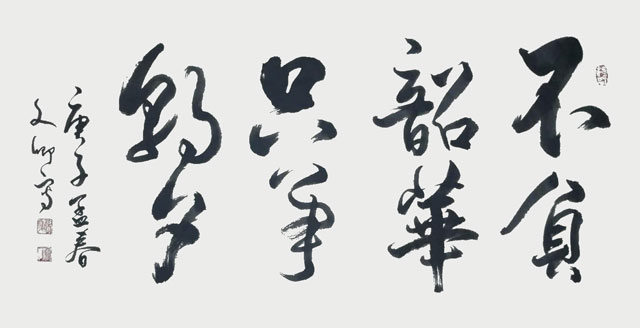 不負
韶華
只争
朝夕
庚子孟春
文卿寫